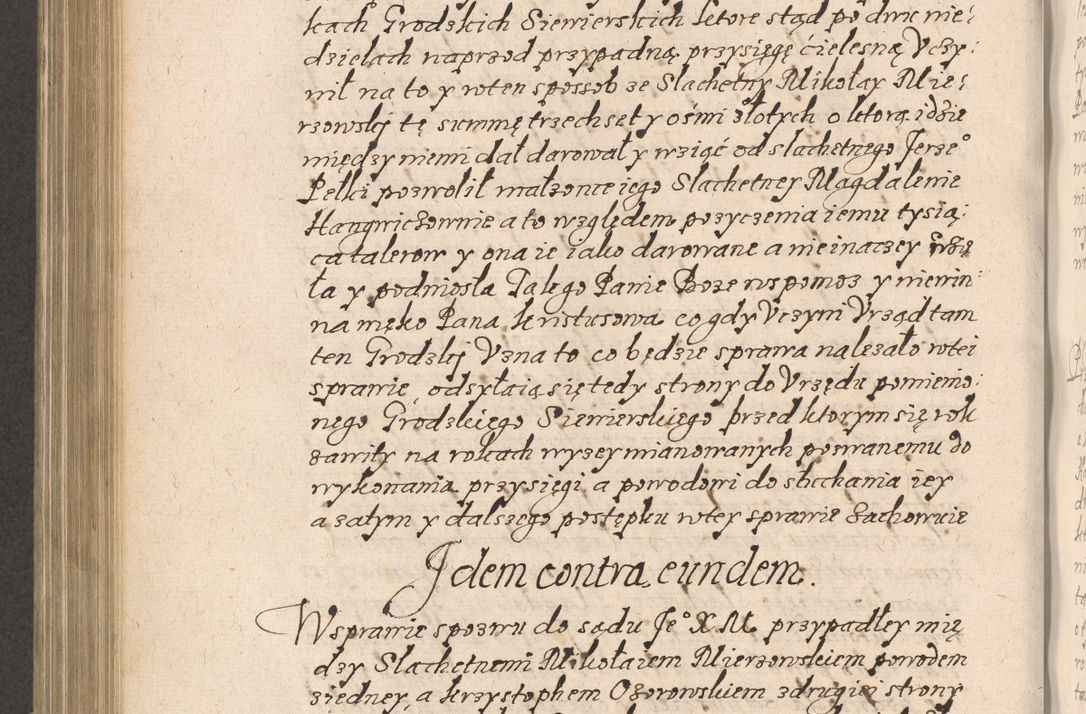 kach Grodzkich Siewierskich ktore stąd po dwu nie-
dzielach naprzod przypadną, przysięgę cielesną Vczy-
nił na to y w ten sposob ze Slachetny Mikołay Mie-
rzowskj tę summę trzechset y ośmi złotych o ktorą idzie
między niemi dał darował y wziąć od slachetnego Jerzeo
Pelki pozwolił małzonce iego Slachetney Magdalenie
Hangwiczownie a to względem pozyczenia iemu tysią-
ca talerow y ona ie iako darowane a nieinaczey wzię
ła y podniosła Tak go Panie Boze wspomoz y niewin-
na męko Pana Kristusowa co gdy Vczyni Vrząd tam
ten Grodzkj Vzna to co będzie sprawa nalezało w tei
sprawie, odsyłaią się tedy strony do Vrzędu pomienio-
nego Grodzkiego Siewierskiego przed ktorym się rok
zawity na rokach wyzey mianowanych pozwanemu do
wykonania przysięgi a powodowi do słuchania iey
a zatym y dalszego postępku w tey sprawie Zachowuie
Idem contra eundem.
W sprawie spozwu do sądu Jeo X M. przypadłey mię
dzy Slachetnemi Mikołaiem Mierzowskiem powodem
ziedney, a krzystophem Ozorowskiem zdrugiei strony